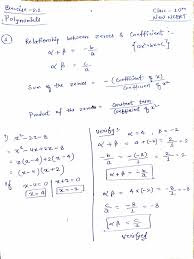 Exercise - 2.2
Polynomials
Class - 10th
New NCERT
① Relationship between zeroes & Coefficient :-
α + β = -b/a {ax²+bx+c}
α β = c/a
Sum of the zeroes = -(Coefficient of x)/Coefficient of x²
Product of the zeroes = constant term/coefficient of x²
i) x²-2x-8
x²-4x+2x-8
x(x-4)+2(x-4)
(x-4)(x+2)
If x-4=0 | x+2=0
x=4 | x=-2
Verify:
α+β = 4+(-2) = 2/1 = 2
-b/a = -(-2)/1 = 2/1 = 2
α+β = -b/a
αβ = 4×(-2) = -8
c/a = -8/1 = -8
αβ = c/a
Verified